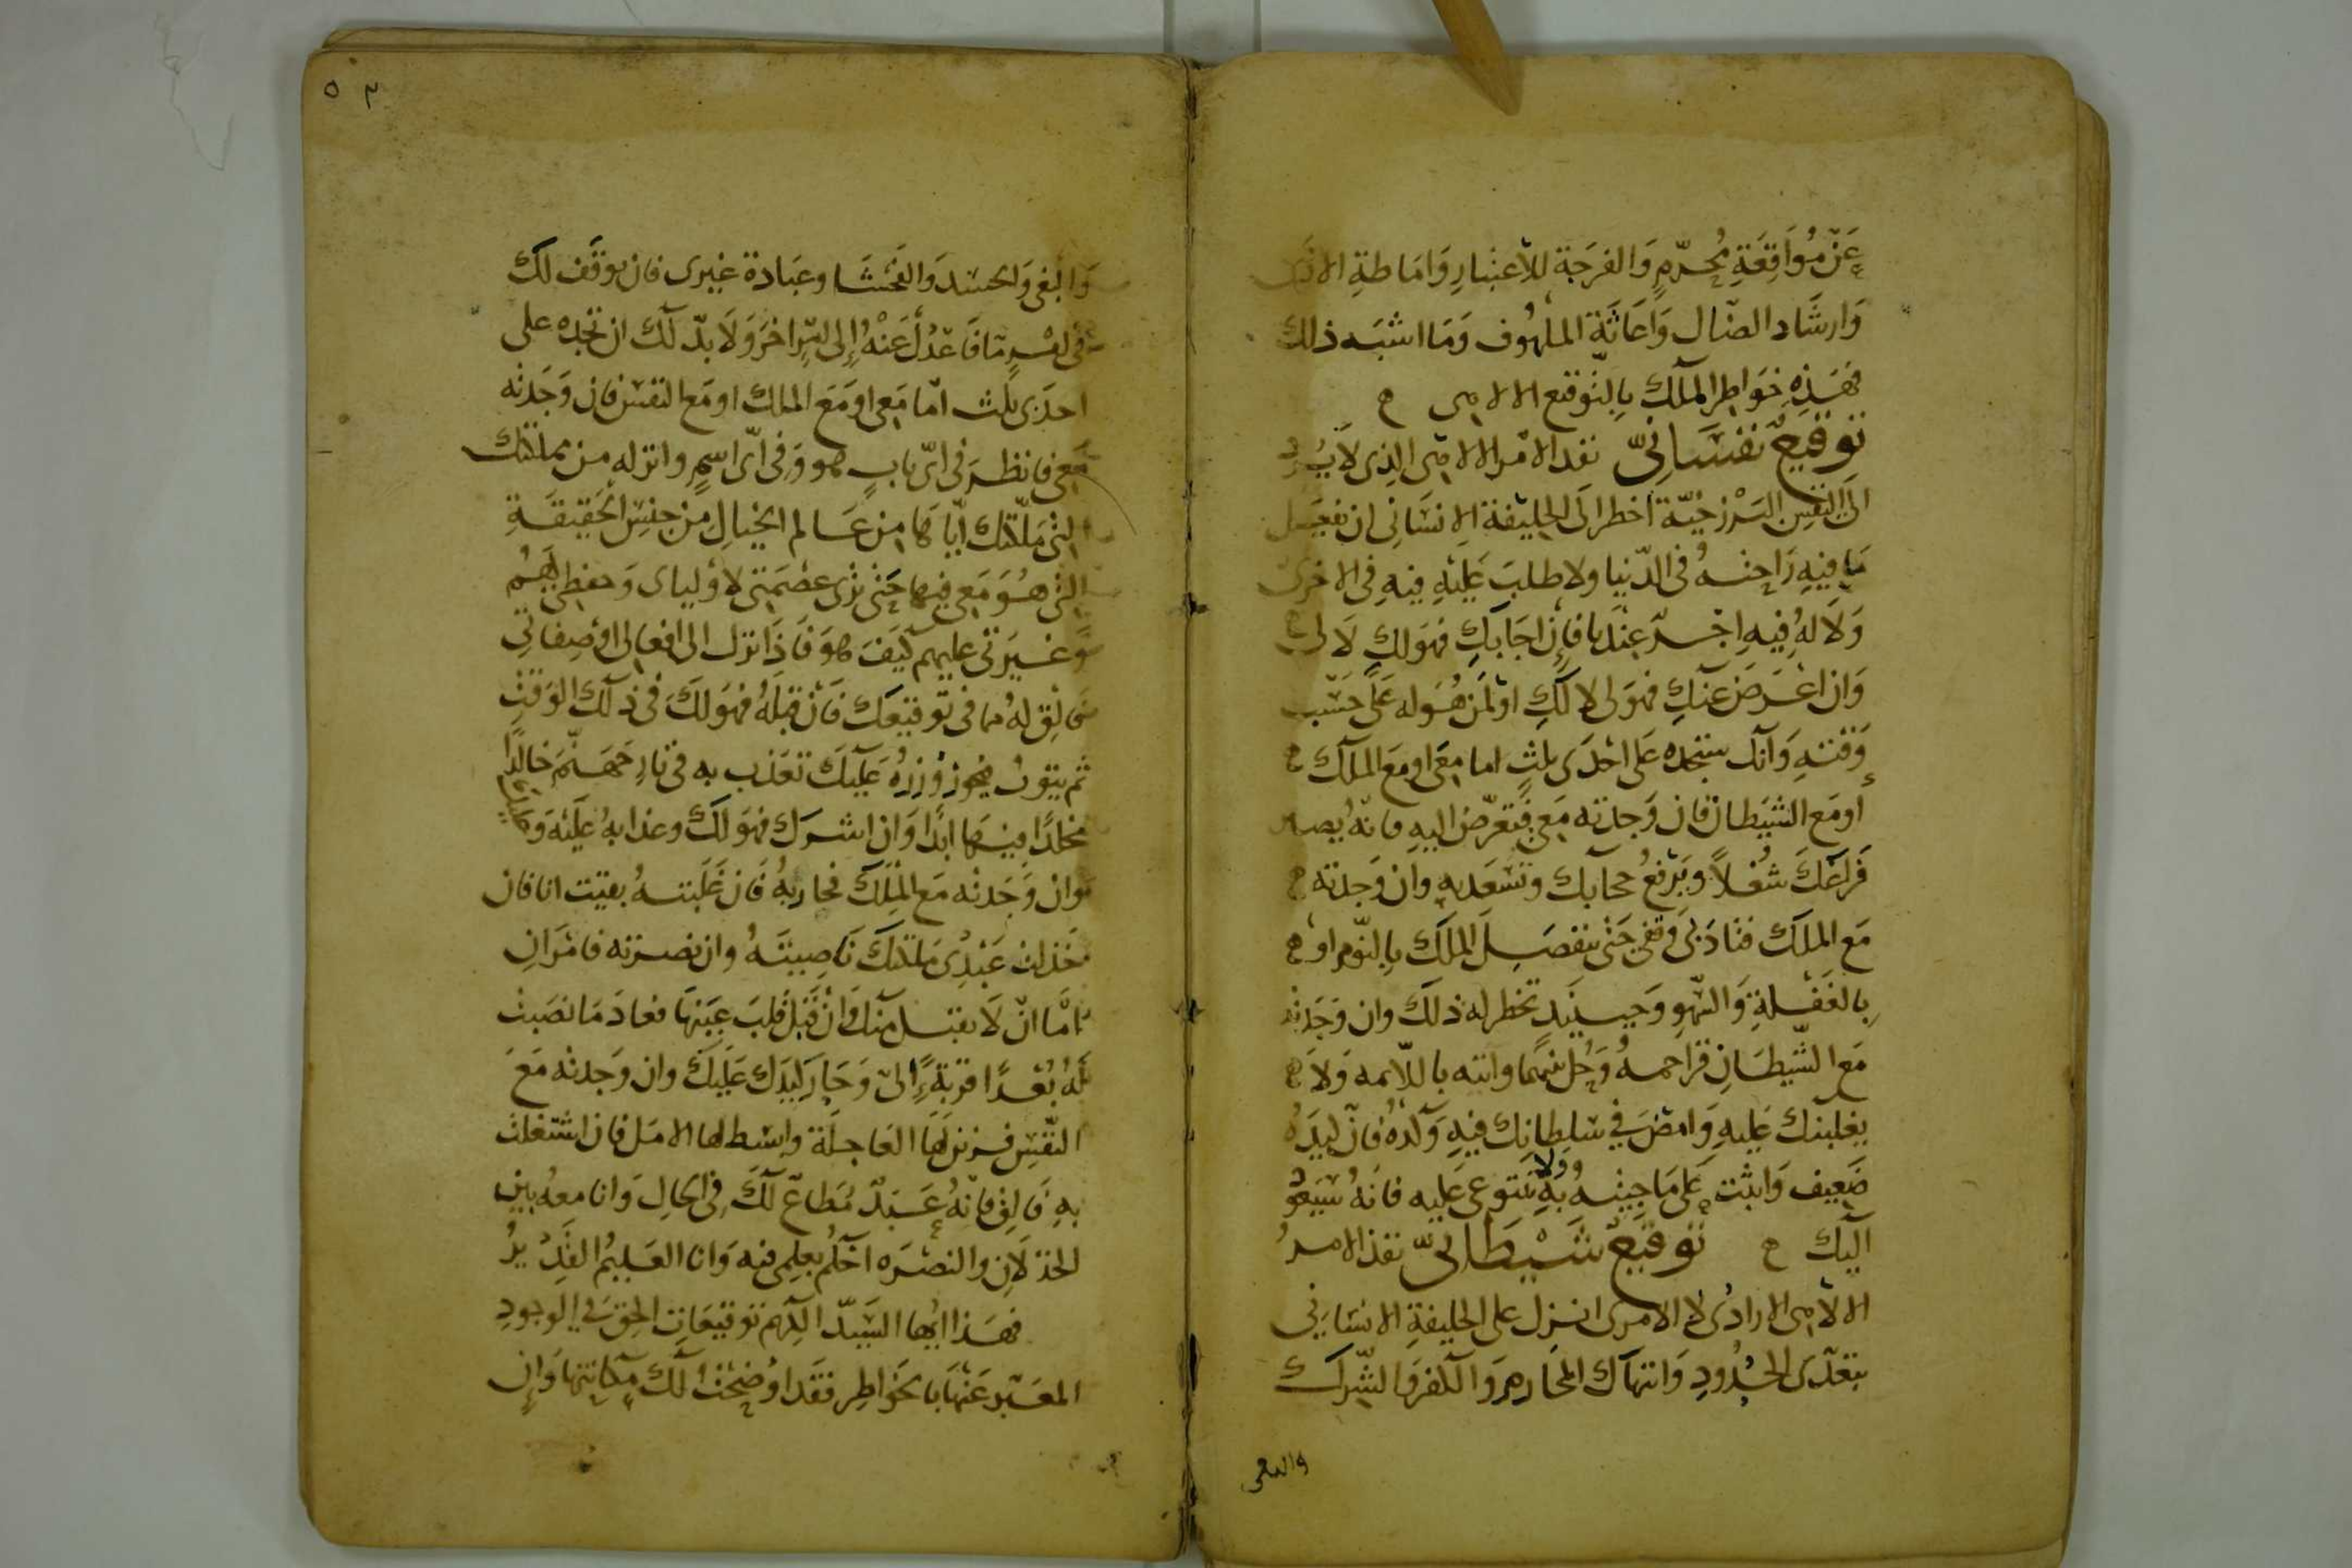 عَنْ مُوَاقِعَةِ مُحَرَّمٍ وَالفرجَة للأعتبارِ وَامَاطةِ الاذى
وَارشَاد الضّال وَاغَاثَة الملهُوف وَمَا اشبَه ذلك
فهَذِهِ خوَاطِر الملَك بِالتوقيع الالاهى
توقيعٌ نفسَانىّ نفذ الامر الالاهى الذى لا يُردّ
الىَ النفسِ البَرْزخيّة اخطر الىَ الخليفة الانسَانى ان يفعَل
مَا فِيهِ رَاحتهُ فى الدّنيا ولا طلبَ عَليْهِ فيهِ فى الاخرى
وَلَا لهُ فِيهِ اجرٌ عندنا فاِن اجَابكِ فهوَ لكِ لَا لى
وَان اعْرَضَ عنكِ فهوَ لى لا لكِ اوْ لمَن هُوَ له عَلى حَسب
وَقتهِ وَانك ستجده عَلى احْدَى ثلثٍ اما مَعى او مَع الملَك
أو مَع الشيَطان فان وَجدته مَعى فتعرّض اليهِ فانّه يصير
فراغكَ شُغلاً ويَرْفعُ حجابك وتسْعَد به وان وَجدته
مَع الملَك فنادَى وَقفى حَتى ينفصِل الملَك بِالنّوم اوْ
بِالغَفْلةِ وَالسّهوِ وَحينيَذٍ تخطر له ذلكَ وان وَجَدته
مَع الشّيطَانِ فزاحمهُ وَحُل بينهما وانته باللائمه وَلَا
يغلبنك عَليهِ وَامضَ فِي سُلطانِك فيهِ وَلَذْهُ فان كيدَهُ
ضَعِيف وَاثبت عَلى مَا جيتهُ بهِ وَلا تَستوعى عَليه فانهُ سَيَعُودُ
اليك توقيعٌ شَيْطَانىّ نفذ الامرُ
الالاهى الارادى لا الامرى انزل على الخليفةِ الانسَانِى
بتعدّى الحُدُودِ وَانتهاك المحَارم وَالكفر وَالشّرك
والبغى
٥٣
وَالبغى وَالحسَد وَالفحشَا وعبَادة غيرى فان توقّف لكَ
فى امْرٍ مّا فَاعْدُل عَنْهُ اِلى امْرٍ اخرَ وَلَا بدّ لك ان تجده على
احدَى ثلث امّا مَعى اوْ مَعَ الملك او مَع النفس فان وَجَدته
مَعى فانظرَ فى ايّ بابٍ هو وَفى ايّ اسمٍ وانزله من مملكتك
التى مَلّكتك ايّاهَا من عَالم الخيالِ مِن جنسِ الحَقِيقةِ
التى هُوَ مَعى فيها حَتى ترى عصْمَتى لاوْلياى وَحفظى لهُم
وَغيرَتى عليهم كيفَ هوَ فَاذَا نزل الى افعَالى اوْ صِفاتى
فالق لهُ مما فى توقيعك فان قبلَهُ فهوَ لكَ فى ذلك الوَقتِ
ثم يتوبُ فيحوز وُزرَهُ عَليكَ تعَذب به فى نارِ جَهنّم خالدًا
مخلدًا فيهَا ابدًا وَان اشرَك فهوَ لكَ وعذابهُ عَليْهِ وَعَليكَ
وَان وَجَدته مَع المَلَك فحاربهُ فان غَلبتهُ بقيت انا فان
خَذلت عَبْدِى مَلكتكَ نَاصِيتَهُ وان نصرته فامْرَانِ
امَّا انْ لا يقبل منك وَان قَبل قلبَ عَينهَا فعادَ مَا نصَبت
لهُ بُعْدًا قربةً اِلىّ وَحَار كيَدك عَليكَ وان وَجدته مَعَ
النّفسِ فزيّن لهَا العَاجلة وابسط لها الامَل فان اشتغلت
بهِ فَالق فانّهُ عَبدٌ مُطاعٌ لكَ فى الحالِ وَانا معهُ بين
الخذلَان والنصْرَه احْكُم بعِلمى فيه وَانا العَليمُ القَدِيرُ
فهَذا ايُّها السَّيدّ الكِريم توقيعَات الحق فى الوجودِ
المعَبّر عَنْهَا بالخوَاطِر فقَد اوْضحْت لك مكانتها وَان